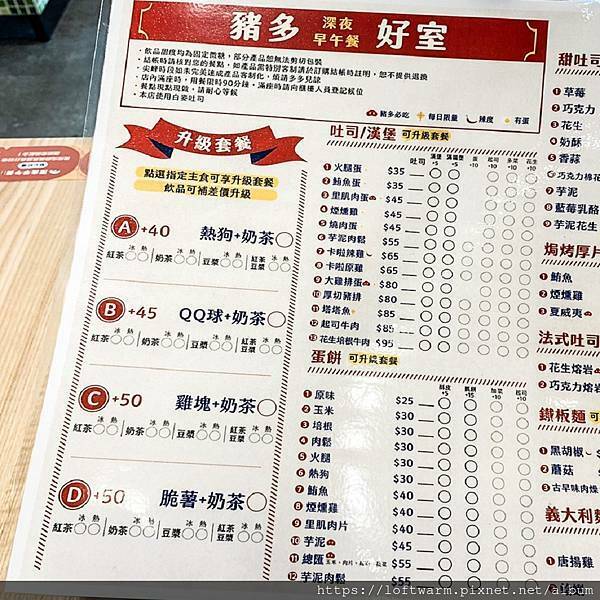 豬多 深夜早午餐 好室
・飲品甜度均為固定微糖，部分產品恕無法剪切包裝
・店內滿座時，用餐限時90分鐘，滿座時請向櫃檯人員登記候位
・餐點現點現做，請耐心等候
・本店使用白姿吐司
豬多必吃 每日限量 辣度 有蛋
升級套餐
點選指定主食可享升級套餐
飲品可補差價升級
A +40 熱狗+奶茶
冰 熱 冰 熱 冰 熱 冰 熱
紅茶 奶茶 豆漿 紅茶豆漿
B +45 QQ球+奶茶
冰 熱 冰 熱 冰 熱 冰 熱
紅茶 奶茶 豆漿 紅茶豆漿
C +50 雞塊+奶茶
冰 熱 冰 熱 冰 熱 冰 熱
紅茶 奶茶 豆漿 紅茶豆漿
D +50 脆薯+奶茶
冰 熱 冰 熱 冰 熱 冰 熱
紅茶 奶茶 豆漿 紅茶豆漿
吐司/漢堡 可升級套餐
吐司 漢堡+5
1 火腿蛋 $35
2 鮪魚蛋 $35
3 里肌肉蛋 $45
4 煙燻雞 $45
5 燒肉蛋 $45
6 芋泥肉鬆 $55
7 卡啦辣雞 $65
8 卡啦原雞 $65
9 大雞排蛋 $80
10 厚切豬排 $80
11 塔塔魚 $85
12 起司牛肉 $85
13 花生培根牛肉 $95
蛋餅 可升級套餐
1 原味 $25
2 玉米 $30
3 培根 $30
4 肉鬆 $30
5 火腿 $30
6 熱狗 $30
7 鮪魚 $40
8 煙燻雞 $40
9 里肌肉片 $40
10 芋泥 $45
11 總匯 $55
12 芋泥肉鬆 $55
甜吐司
1 草莓
2 巧克力
3 花生
4 奶酥
5 香蒜
6 巧克力棉花
7 芋泥
8 藍莓乳酪
9 芋泥花生
焗烤厚片
1 鮪魚
2 煙燻雞
3 夏威夷
法式吐司
1 花生熔岩
2 巧克力熔岩
鐵板麵 可升
1 黑胡椒
2 蘑菇
3 古早味肉燥
義大利麵
1 唐揚雞
https://loftwarm.pixnet.net/album